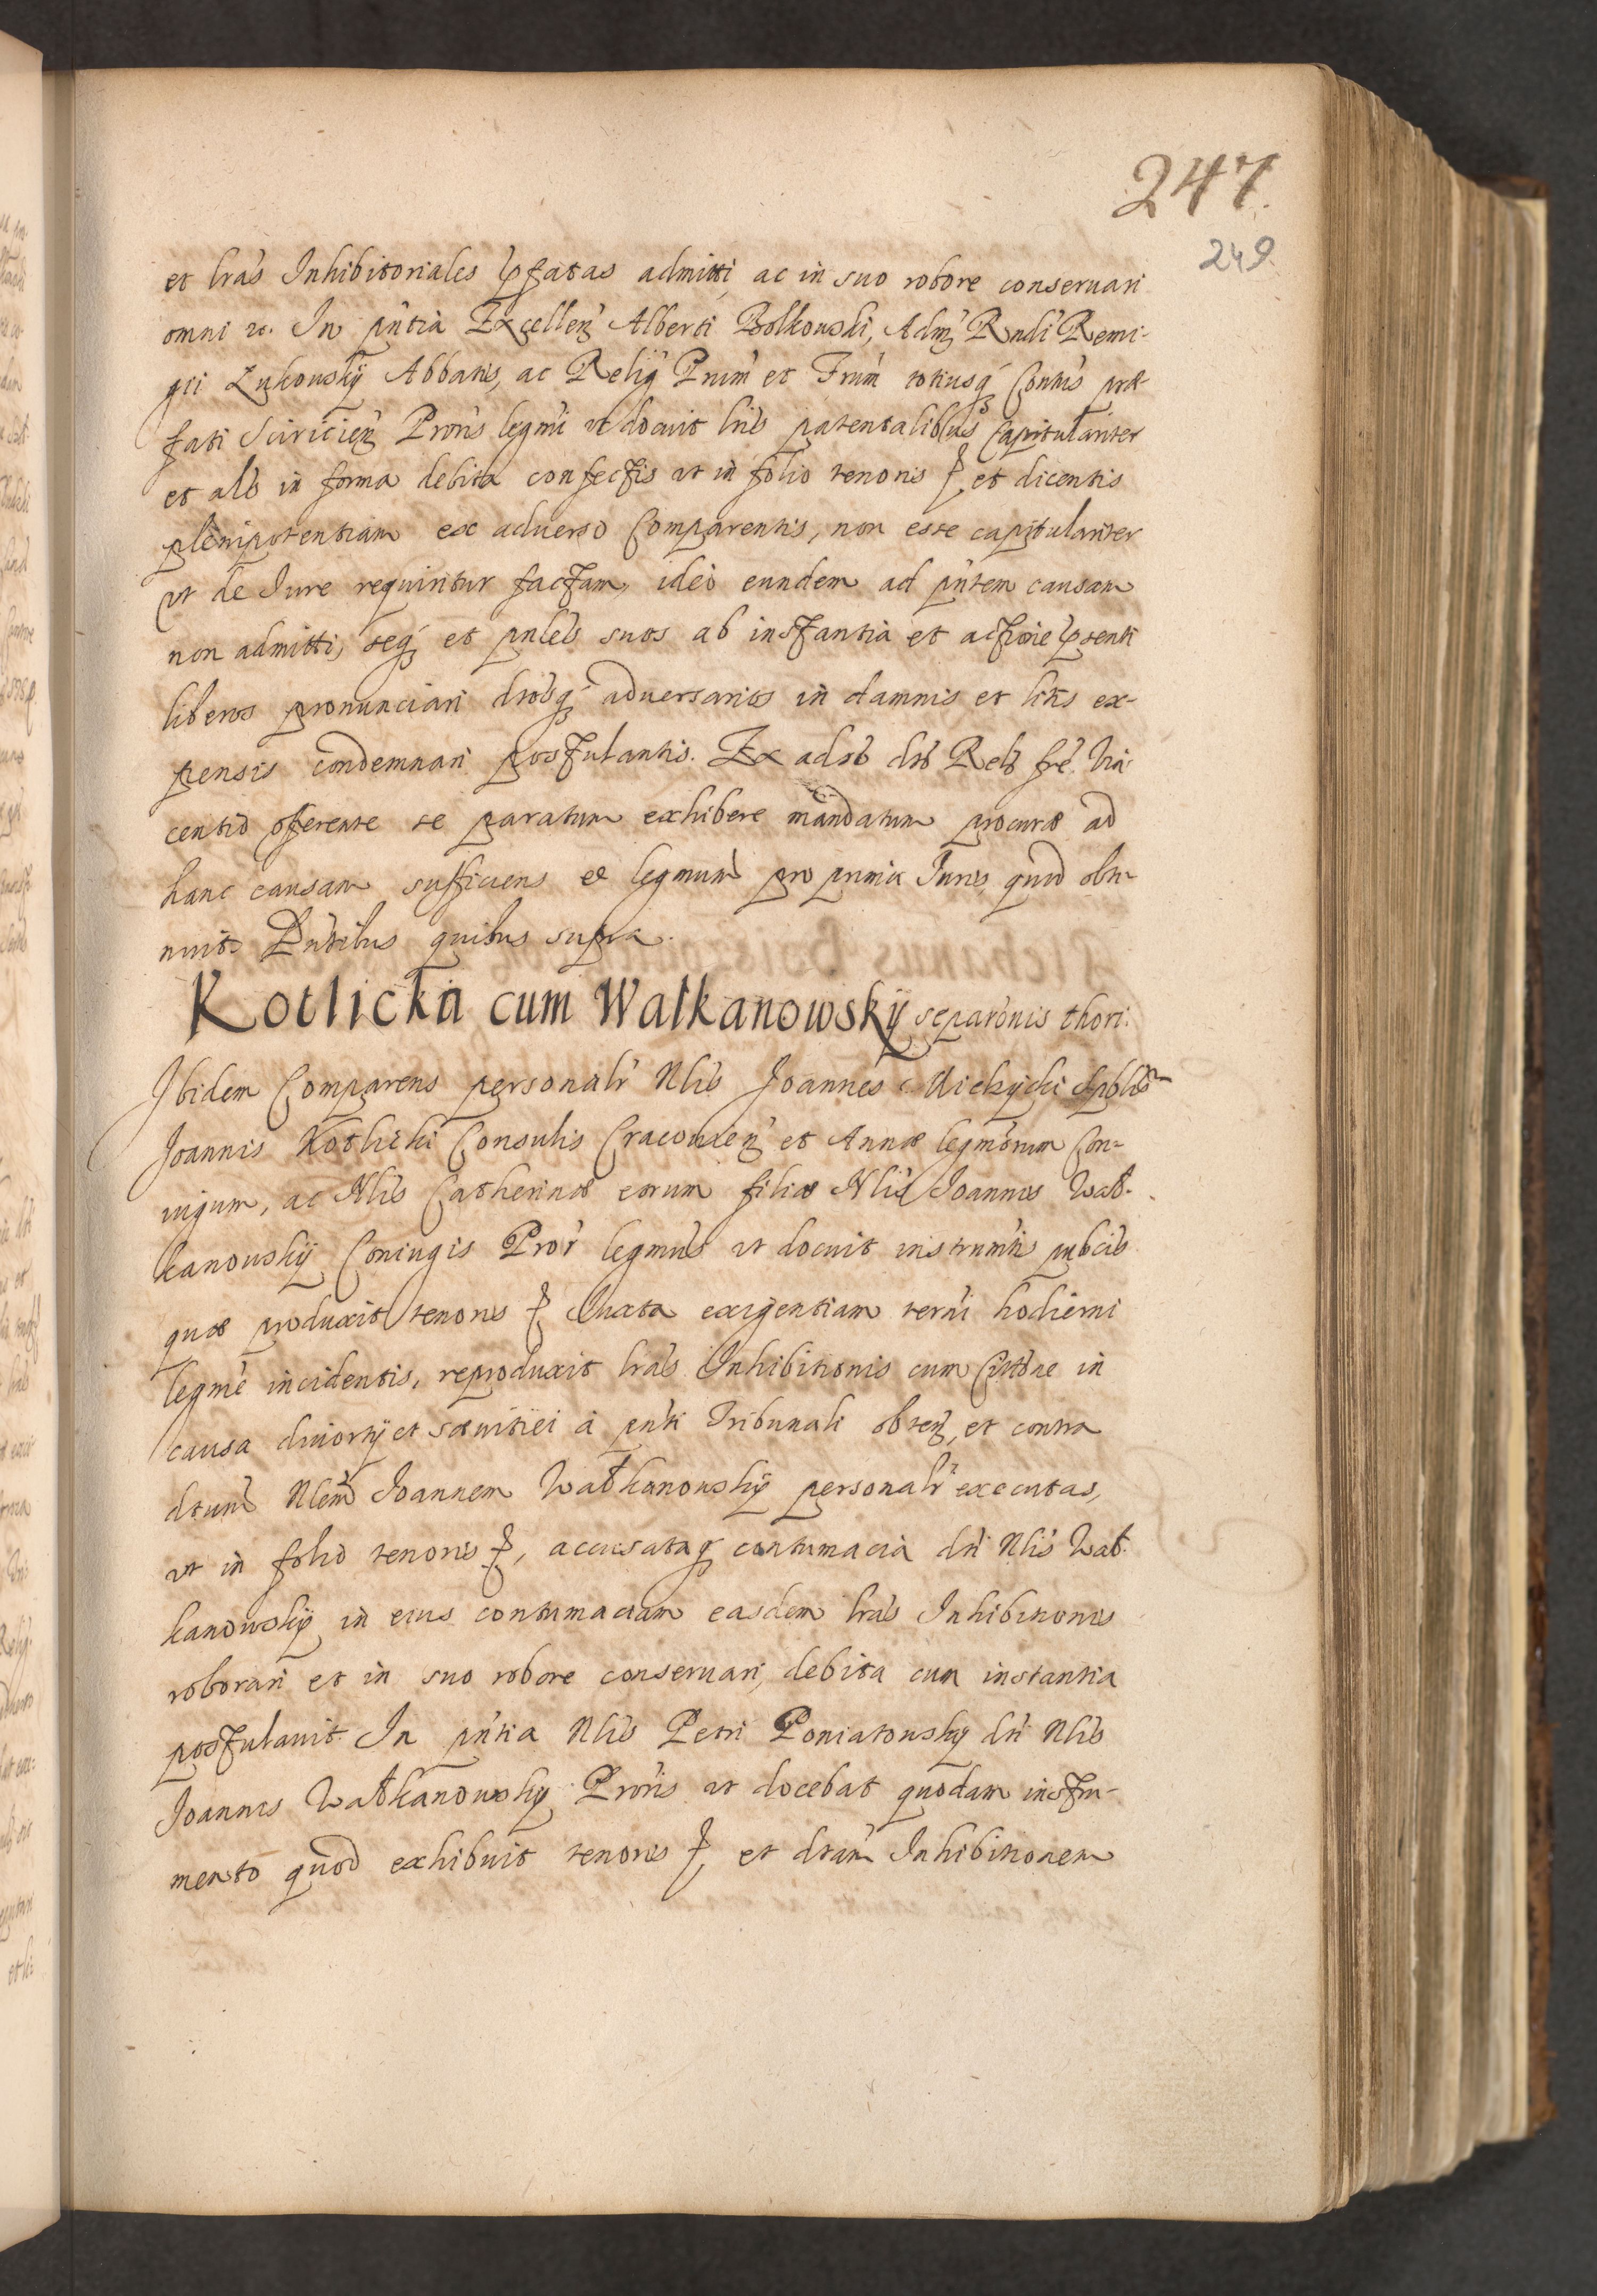 247.
249
et lras Inhibitoriales pfatas admitti, ac in suo robore conseruari
omni etc. In pntia Excellen Alberti Bolkowski, Adm Rndi Remi-
gii Zukowskÿ Abbatis, ac Relig Prum et Frum totiusq Contus præ
fati Sciricien Proris legmi ut docuit lris patentalibus Capitulariter
et als in forma debita confectis ut in folio tenoris et dicentis
plenipotentiam ex aduerso Comparentis, non esse capitulariter
ut de Iure requiritur factam, ideo eundem ad pntem causam
non admitti, seq et pnles suos ab instantia et actione psenti
liberos pronunciari dtosq aduersarios in damnis et litis ex-
pensis condemnari postulantis. Ex adso dto Relg fre Hia-
centio offerente se paratum exhibere mandatum procuræ ad
hanc causam sufficiens et legmum pro prima Iuris, quod obti-
nuit Pntibus quibus supra.
Kotlicka cum Watkanowskÿ separonis thori.
Ibidem Comparens personalr Nlis Joannes Mickÿcki Spblis
Joannis Kotlicki Consulis Cracouien et Annæ legmorum Con-
iugum, ac Nlis Catherinæ eorum filiæ Nlis Joannis Wat-
kanowskÿ Coniugis Pror legmus ut docuit instrumti pubcis
quæ produxit tenoris Iuxta exigentiam termi hodierni
legme incidentis, reproduxit lras Inhibitionis cum Cittone in
causa diuortÿ et sæuitiei à pnti Tribunali obten, et contra
dtum Nlem Joannem Watkanowskÿ personalr executas,
ut in folio tenoris, accusataq contumacia dti Nlis Wat-
kanowskÿ in eius contumaciam easdem lras Inhibitionis
roborari et in suo robore conseruari, debita cum instantia
postulauit. In pntia Nlis Petri Poniatowskÿ dti Nlis
Joannis Watkanowskÿ Proris ut docebat quodam instru-
mento quod exhibuit tenoris et dtam Inhibitionem